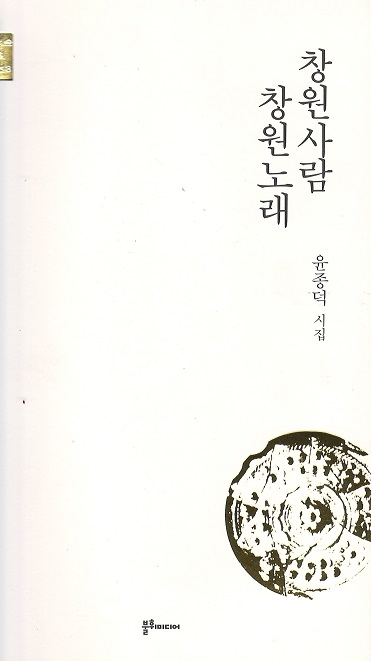 창원사람
창원노래
윤종덕 시집
불휘미디어